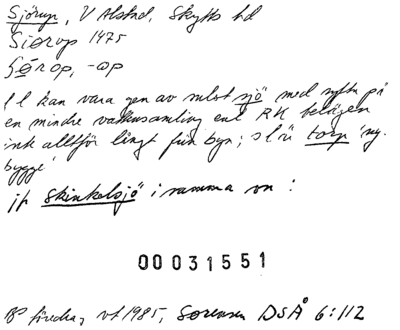 Sjörup, V Alstad, Skytts hd
Siørup 1475
Sørop, -øp
fl kan vara gen av subst sjö med syftn på
en mindre vattensamling enl RK belägen
ink alltför långt från byn; sl är torp 'ny-
bygge'
jfr Skinkelsjö i samma sn!
00031551
BP föredrag vt 1985, Sørensen DSÅ 6:112